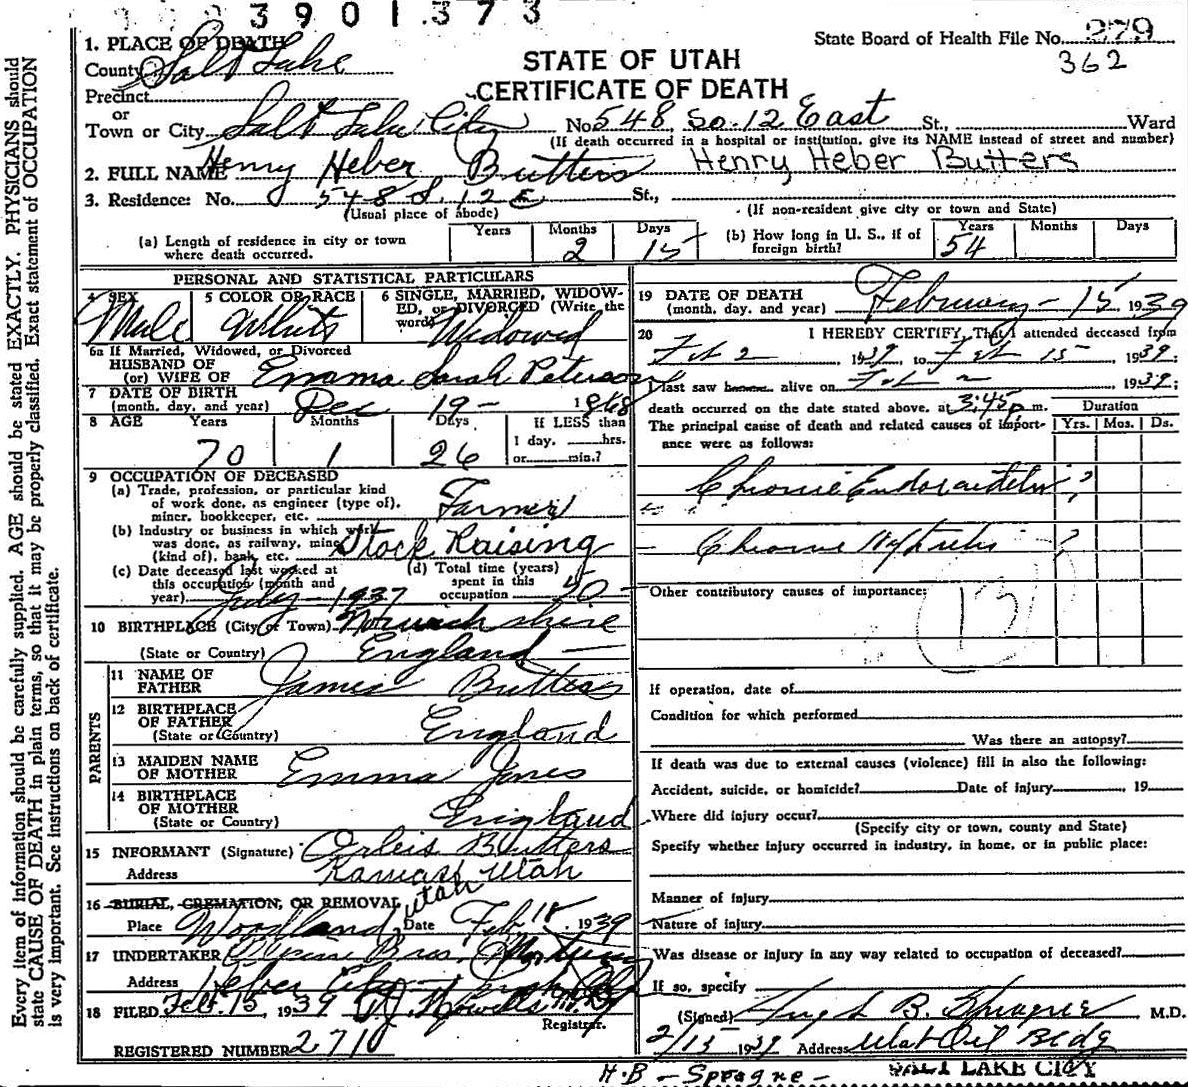 3901373
State Board of Health File No. 279
362
STATE OF UTAH
CERTIFICATE OF DEATH
1. PLACE OF DEATH
County Salt Lake
Precinct
or
Town or City Salt Lake City No. 548 So. 12 East St., Ward
(If death occurred in a hospital or institution, give its NAME instead of street and number)
2. FULL NAME Henry Heber Butters Henry Heber Butters
3. Residence: No. 548 S. 12 E St.,
(Usual place of abode) (If non-resident give city or town and State)
(a) Length of residence in city or town where death occurred. Years Months 2 Days 15
(b) How long in U. S., if of foreign birth? Years 54 Months Days
PERSONAL AND STATISTICAL PARTICULARS
4 SEX Male
5 COLOR OR RACE White
6 SINGLE, MARRIED, WIDOWED, or DIVORCED (Write the word) Widowed
6a If Married, Widowed, or Divorced
HUSBAND OF
(or) WIFE OF Emma Sarah Peterson
7 DATE OF BIRTH
(month, day, and year) Dec 19- 1868
8 AGE Years 70 Months 1 Days 26 If LESS than
1 day, hrs.
or min.?
9 OCCUPATION OF DECEASED
(a) Trade, profession, or particular kind
of work done, as engineer (type of),
miner, bookkeeper, etc. Farmer
(b) Industry or business in which work
was done, as railway, mine
(kind of), bank, etc. Stock Raising
(c) Date deceased last worked at
this occupation (month and
year) July-1937
(d) Total time (years)
spent in this
occupation 50-
10 BIRTHPLACE (City or Town) Norwichshire
(State or Country) England
PARENTS
11 NAME OF
FATHER James Butters
12 BIRTHPLACE
OF FATHER
(State or Country) England
13 MAIDEN NAME
OF MOTHER Emma Jones
14 BIRTHPLACE
OF MOTHER
(State or Country) England
15 INFORMANT (Signature) Orleis Butters
Address Kamas Utah
16 BURIAL, CREMATION, OR REMOVAL
Place Woodland, Utah Date Feb 18, 1939
17 UNDERTAKER Olpin Bros
Address Heber City
18 FILED Feb. 15, 1939 Howells
Registrar.
REGISTERED NUMBER 2710
19 DATE OF DEATH
(month, day, and year) February-15 1939
20 I HEREBY CERTIFY, That I attended deceased from
Feb 2 1939, to Feb 15 1939
I last saw alive on Feb 1939
death occurred on the date stated above, at 3:45 p.m.
Duration
Yrs. Mos. Ds.
The principal cause of death and related causes of importance were as follows:
Chronic Endocarditis ?
Chronic ?
Other contributory causes of importance:
131
If operation, date of
Condition for which performed
Was there an autopsy?
If death was due to external causes (violence) fill in also the following:
Accident, suicide, or homicide? Date of injury , 19
Where did injury occur?
(Specify city or town, county and State)
Specify whether injury occurred in industry, in home, or in public place:
Manner of injury
Nature of injury
Was disease or injury in any way related to occupation of deceased?
If so, specify
(Signed) Hugh B. Sprague M.D.
2/15 1939 Address Utah Oil Bldg
H.B - Sprague - SALT LAKE CITY
Every item of information should be carefully supplied. AGE should be stated EXACTLY. PHYSICIANS should
state CAUSE OF DEATH in plain terms, so that it may be properly classified. Exact statement of OCCUPATION
is very important. See instructions on back of certificate.